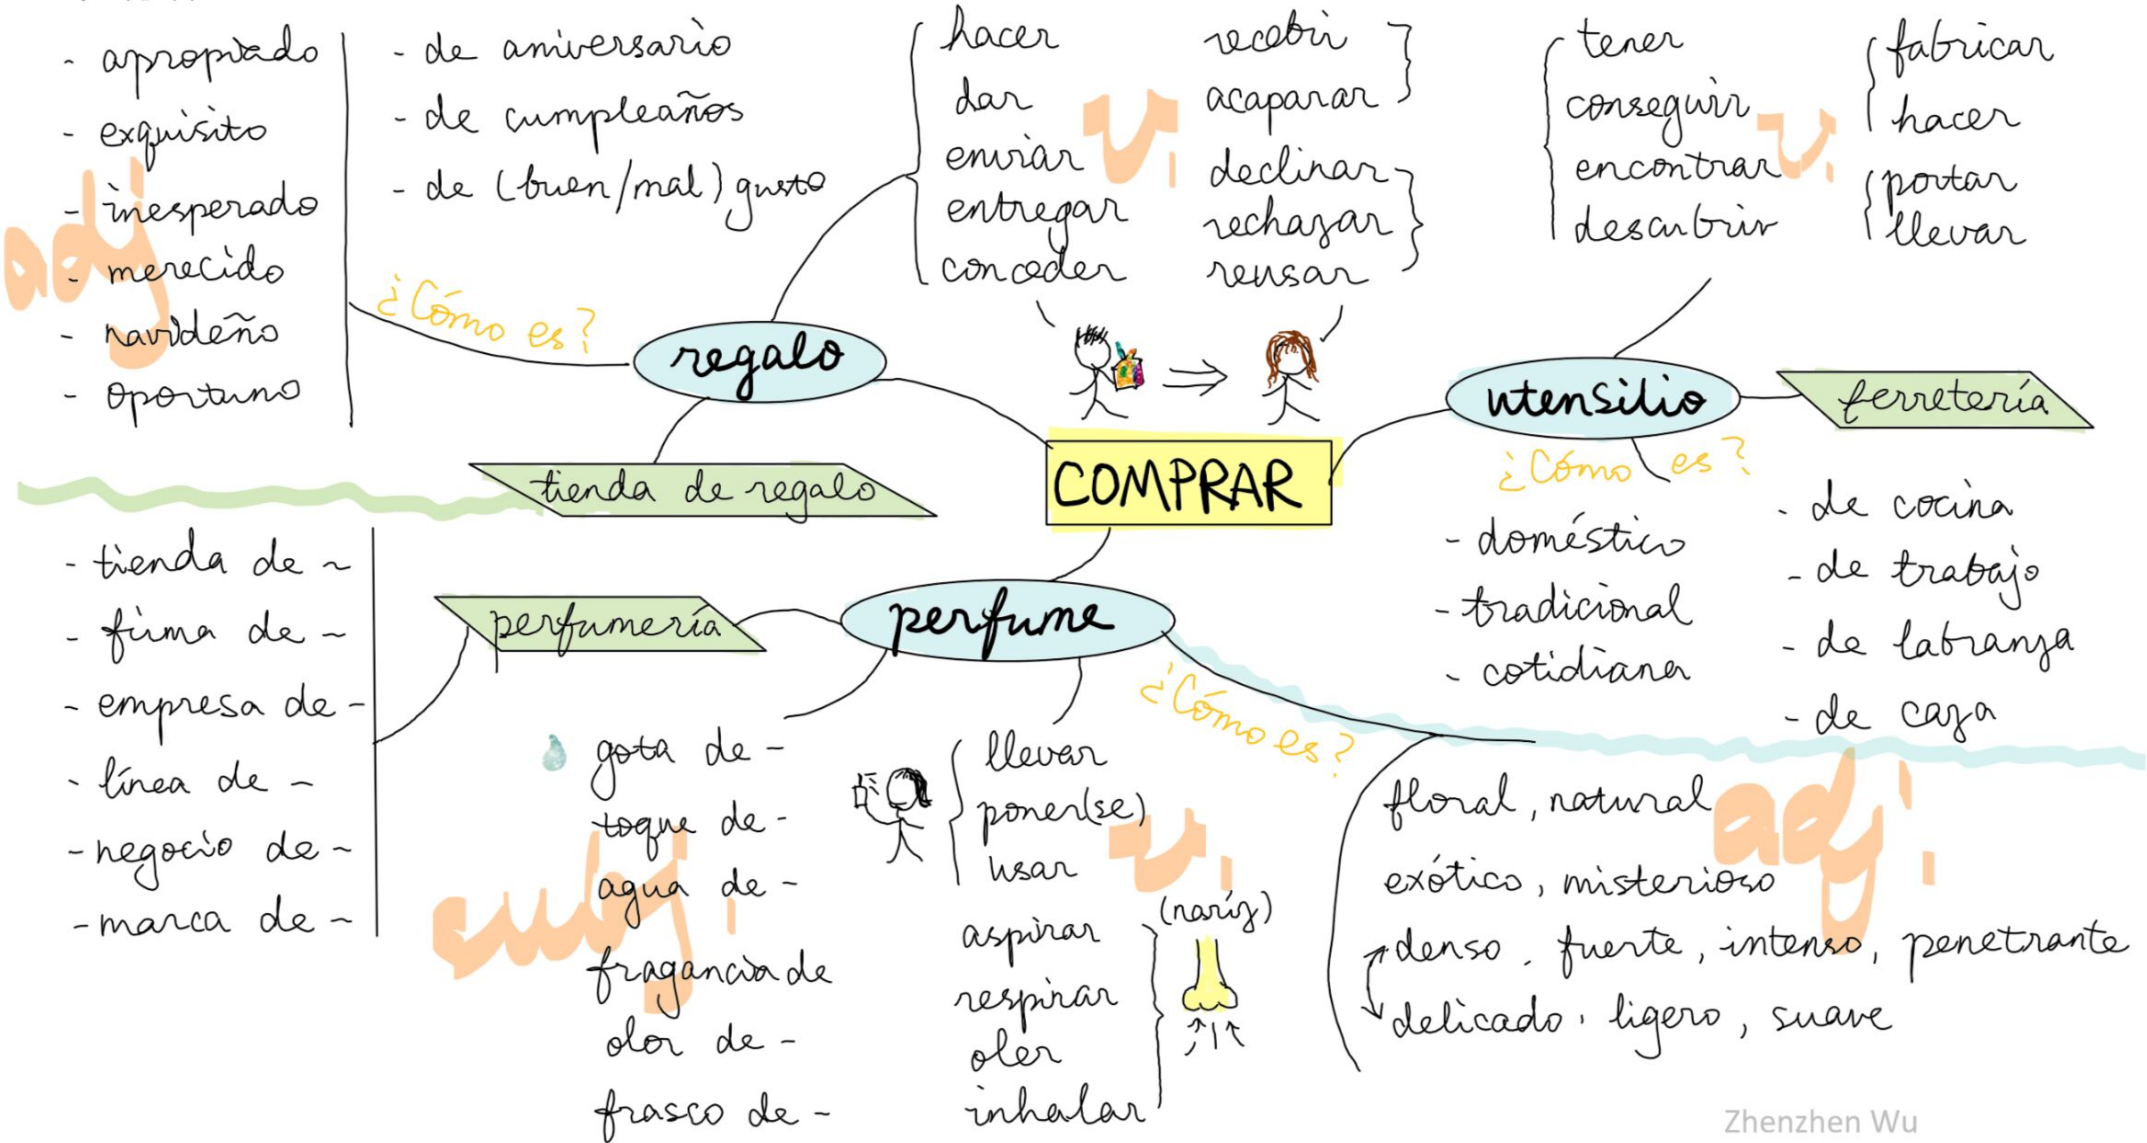 - apropiado
- exquisito
- inesperado
- merecido
- navideño
- oportuno
adj
- de aniversario
- de cumpleaños
- de (buen/mal) gusto
¿Cómo es?
regalo
tienda de regalo
hacer
dar
enviar
entregar
conceder
v.
recebir
acaparar
declinar
rechazar
reusar
COMPRAR
tener
conseguir
encontrar
descubrir
v.
fabricar
hacer
portar
llevar
utensilio
ferretería
¿Cómo es?
- doméstico
- tradicional
- cotidiana
- de cocina
- de trabajo
- de labranza
- de caza
perfume
perfumería
- tienda de ~
- firma de ~
- empresa de -
- línea de ~
- negocio de ~
- marca de ~
gota de -
toque de -
agua de -
fragancia de
olor de -
frasco de -
llevar
poner(se)
usar
v.
aspirar
respirar
oler
inhalar
(naríz)
¿Cómo es?
floral, natural
exótico, misterioso
denso, fuerte, intenso, penetrante
delicado, ligero, suave
adj.
Zhenzhen Wu